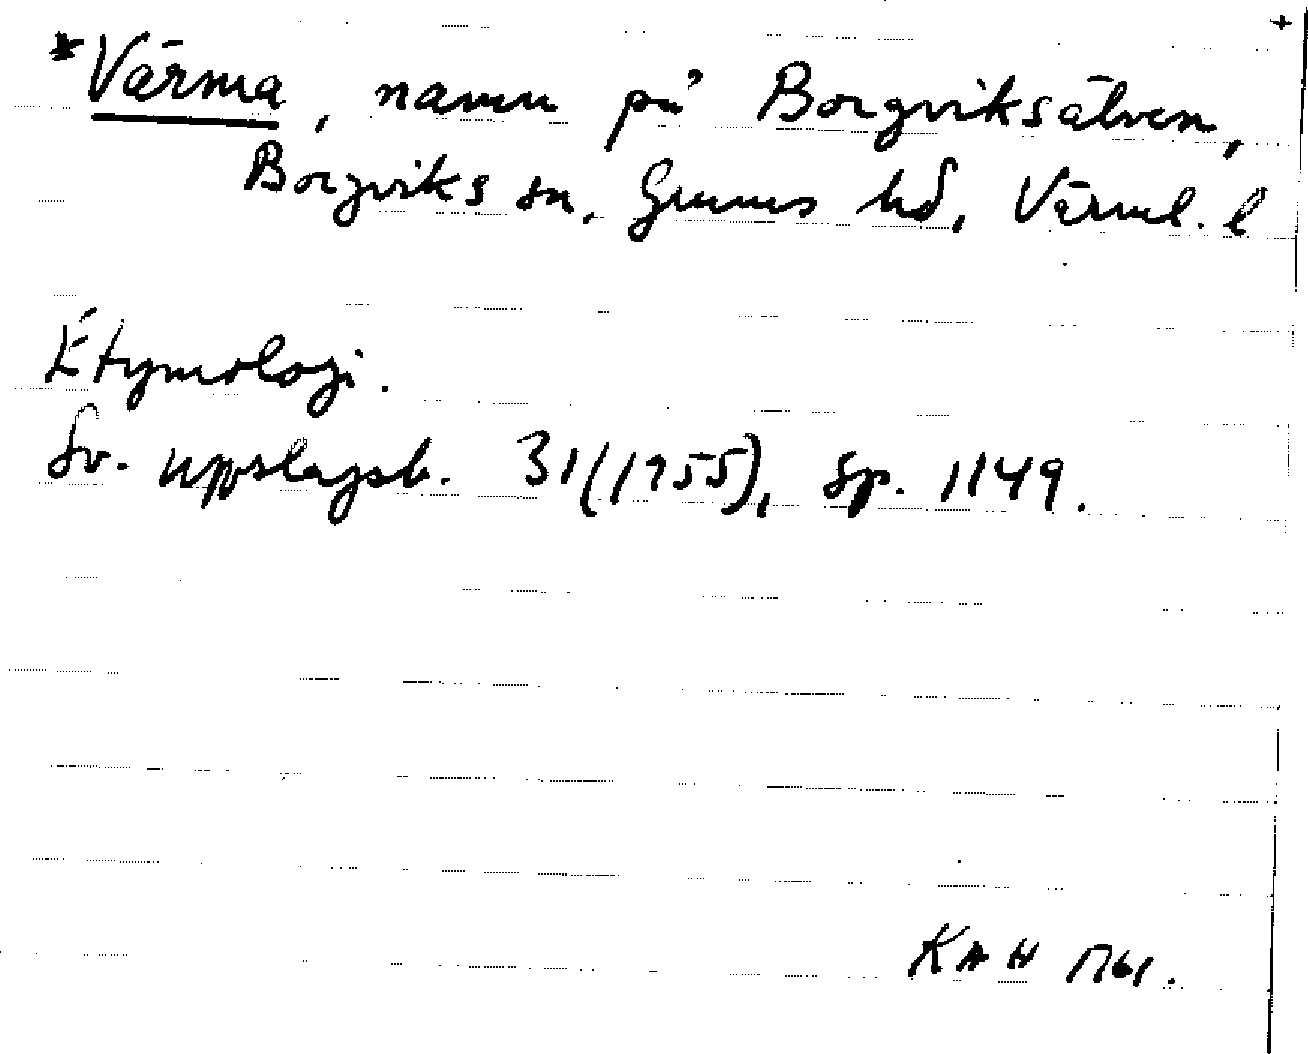 +
*Värma, namn på Borgviksälven,
Borgviks sn, Grums hd, Värml. l
Etymologi.
Sv. uppslagsb. 31(1955), sp. 1149.
KAH 1961.